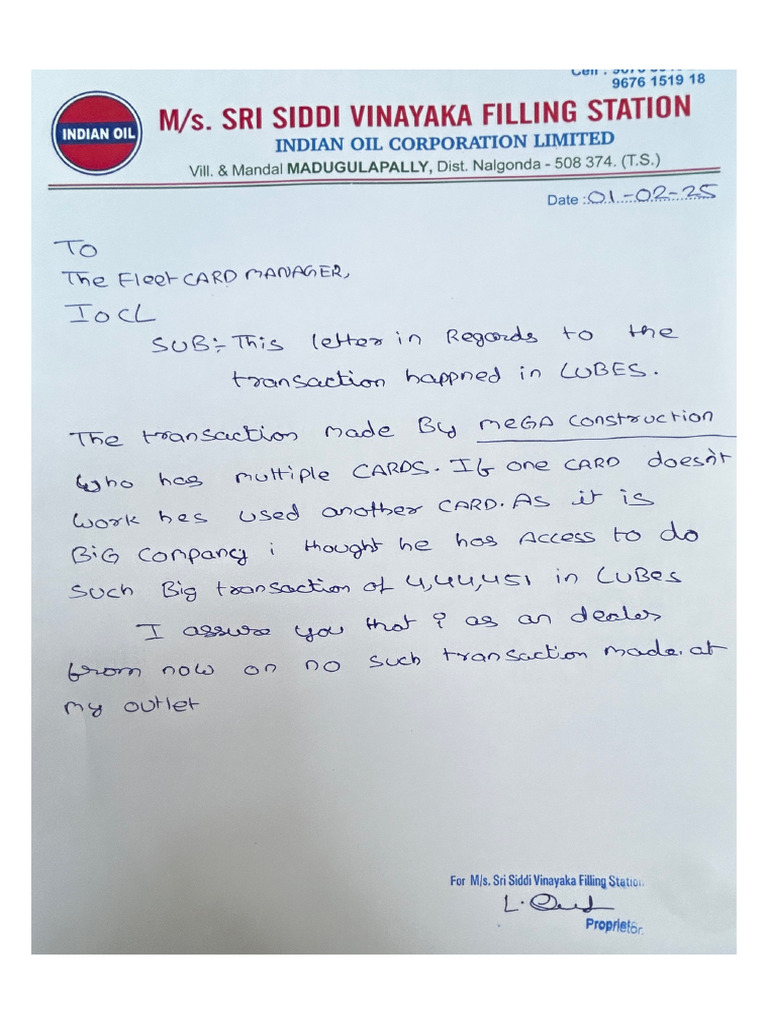 9676 1519 18
INDIAN OIL
M/s. SRI SIDDI VINAYAKA FILLING STATION
INDIAN OIL CORPORATION LIMITED
Vill. & Mandal MADUGULAPALLY, Dist. Nalgonda - 508 374. (T.S.)
Date : 01-02-25
To
The Fleet CARD MANAGER,
IOCL
SUB:- This letter in Regards to the
transaction happned in LUBES.
The transaction made By MEGA construction
who has multiple CARDS. If one CARD doesn't
work hes used another CARD. As it is
BIG company i thought he has Access to do
such Big transaction of 4,44,451 in LUBes
I assure you that i as an dealer
from now on no such transaction made. at
my outlet
For M/s. Sri Siddi Vinayaka Filling Station
Proprietor.